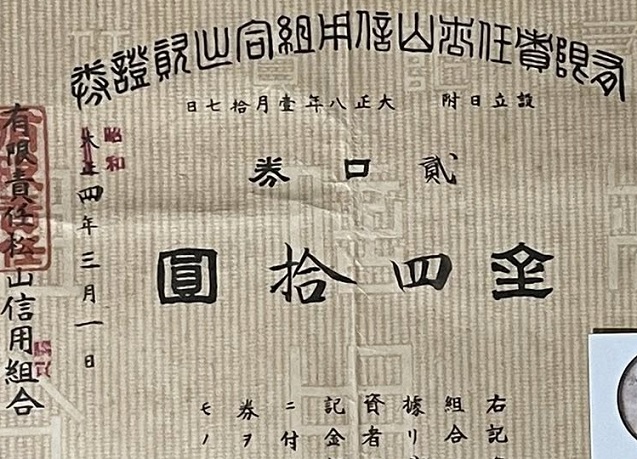 有限責任松山信用組合出資證券
設立日附 大正八年壹月拾七日
貳口券
金四拾圓
右記
組合
據リ
資者
記金
ニ付
券ヲ
モノ
昭和
大正四年三月一日
有限責任松山信用組合